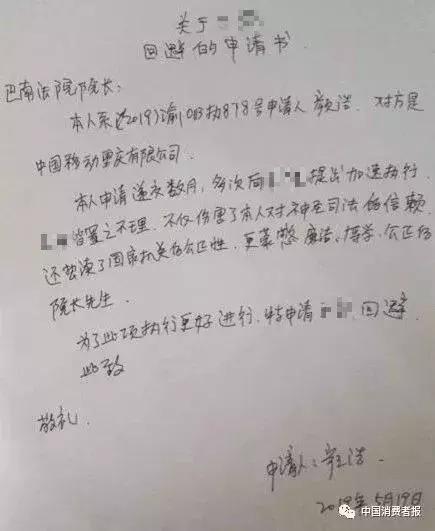 关于
回避的申请书
巴南法院院长:
本人系(2019)渝0113执878号申请人 颜浩. 对方是
中国移动重庆有限公司.
本人申请递交数月,多次向 提出加速执行.
皆置之不理. 不仅伤害了本人对神圣司法的信赖
还亵渎了国家机关的公正性, 更蒙蔽 廉洁、博学、公正的
院长先生.
为了此项执行更好进行. 特申请 回避.
此致
敬礼.
申请人:
2019年5月19日
中国消费者报